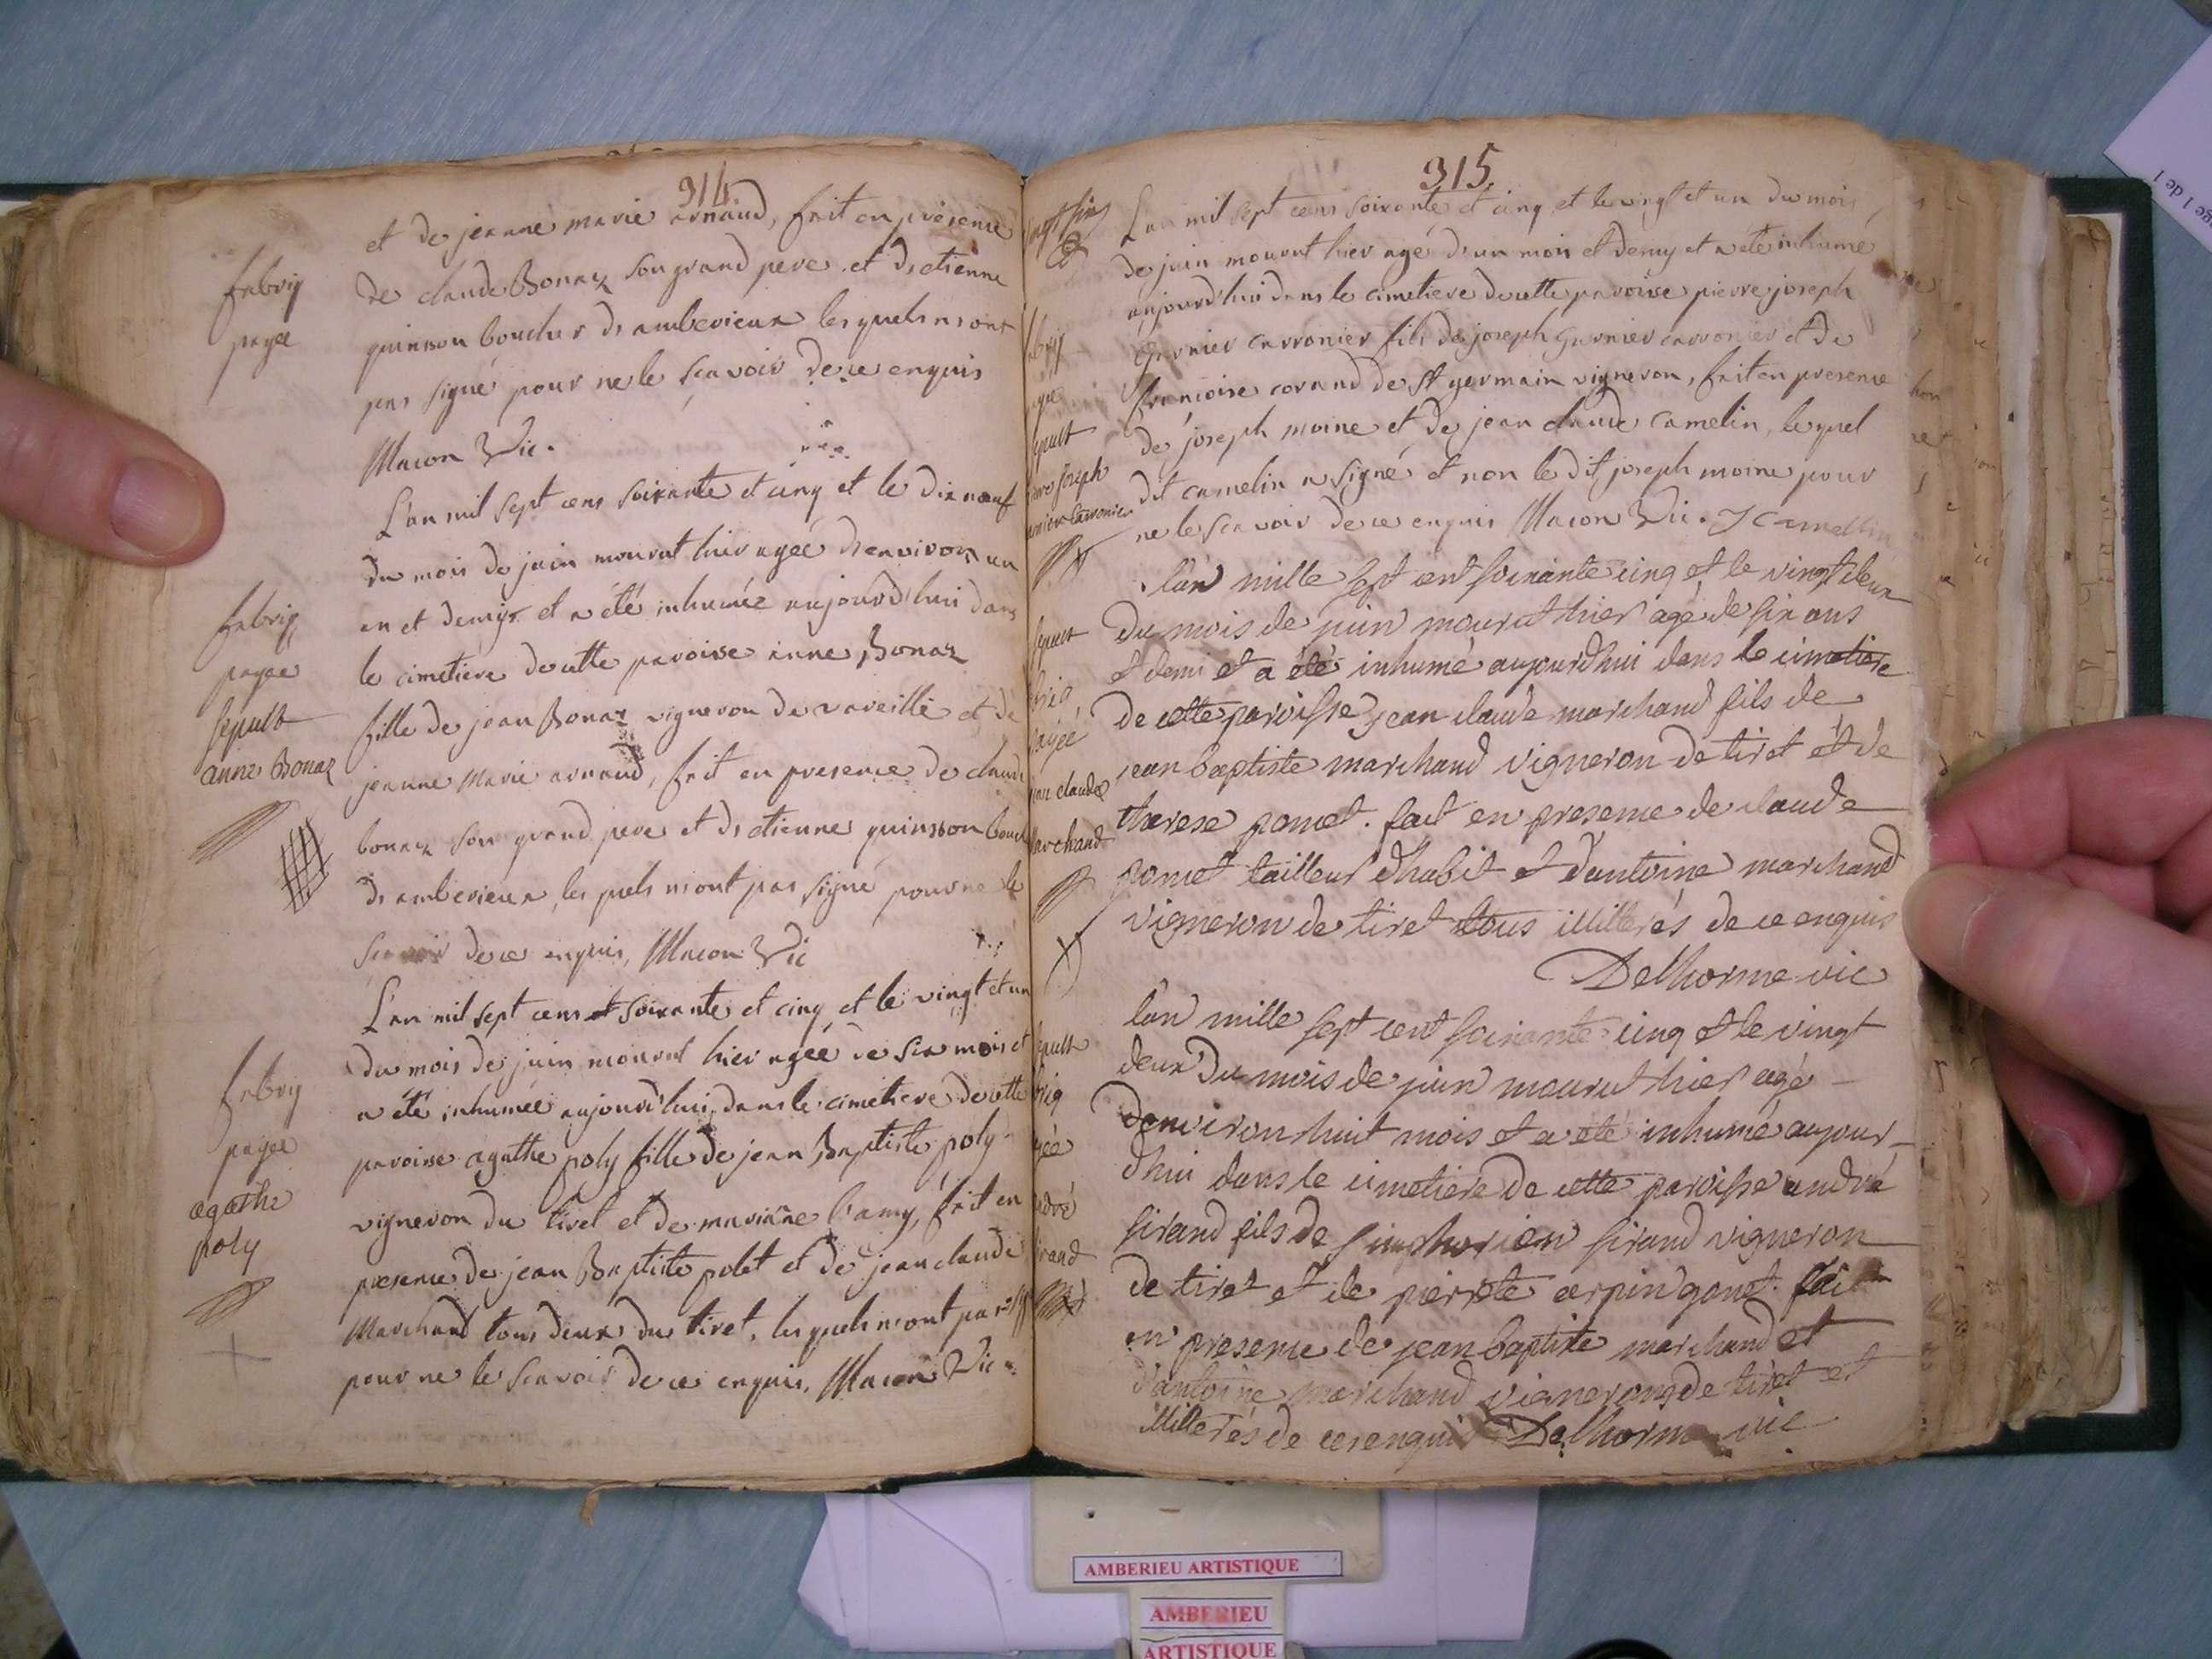 914
et de jeanne marie arnaud, fait en présence
de claude Bonaz son grand pere et d'etienne
quinson boucher d'amberieux lesquels n'ont
pas signé pour ne le sçavoir de ce enquis
Macon Vic.
fabriq
payée
L'an mil sept cens soixante et cinq et le dix neuf
du mois de juin mourut hier agée d'environ un
an et demy et a été inhumée aujourd'hui dans
le cimetiere de cette paroisse anne Bonaz
fille de jean Bonaz vigneron de vareille et de
jeanne Marie arnaud, fait en presence de claude
bonaz son grand pere et d'etienne quinsson bouch
d'amberieux, les quels n'ont pas signé pour ne le
sçavoir de ce enquis, Macon Vic
fabriq
payee
sepult
anne Bonaz
L'an mil sept cens et soixante et cinq et le vingt et un
du mois de juin mourut hier agée de six mois et
a été inhumée aujourd'hui dans le cimetiere de cette
paroisse agathe poly fille de jean Baptiste poly
vigneron du tiret et de marianne l'amy, fait en
presence de jean Baptiste polet et de jean claude
Marchand tous deux du tiret, les quels n'ont pas
pour ne le sçavoir de ce enquis, Macon Vic.
fabriq
payee
agathe
poly
915
L'an mil sept cens soixante et cinq et le vingt et un du mois
de juin mourut hier agé d'un mois et demy et a été inhumé
aujourd'hui dans le cimetiere de cette paroisse pierre joseph
Garnier carronier fils de joseph Garnier carronier et de
francoise corand de St germain vigneron, fait en presence
de joseph moine et de jean claude camelin, lequel
dit camelin a signé et non le dit joseph moine pour
ne le scavoir de ce enquis Macon Vic. J Camellin
sepult
joseph
carronier
l'an mille sept cent soixante cinq et le vingt deux
du mois de juin mourut hier agé de six ans
et demi et a été inhumé aujourd'hui dans le cimetiere
de cette paroisse jean claude marchand fils de
jean baptiste marchand vigneron de tiret et de
therese ponset. fait en presence de claude
ponset tailleur d'habit et d'antoine marchand
vigneron de tiret tous illiterés de ce enquis
Delhorme vic
sepult
payée
jean claude
Marchand
l'an mille sept cent soixante cinq et le vingt
deux du mois de juin mourut hier agé
d'environ huit mois et a été inhumé aujour-
d'hui dans le cimetiere de cette paroisse andré
sirand fils de simphorien sirand vigneron
de tiret et de pierrete arpin gonet. fait
en presence de jean baptiste marchand et
d'antoine marchand vignerons de tiret et
illiterés de ce enquis Delhorme vic
sepult
andré
sirand
AMBERIEU ARTISTIQUE
AMBERIEU
ARTISTIQUE